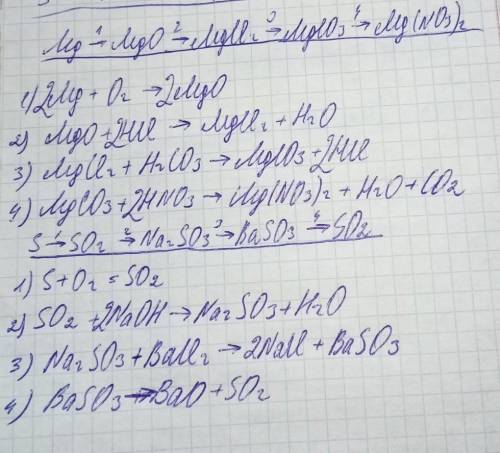 Mg 1→ MgO 2→ MgCl2 3→ MgCO3 4→ Mg(NO3)2
1) 2Mg + O2 → 2MgO
2) MgO + 2HCl → MgCl2 + H2O
3) MgCl2 + H2CO3 → MgCO3 + 2HCl
4) MgCO3 + 2HNO3 → Mg(NO3)2 + H2O + CO2
S 1→ SO2 2→ Na2SO3 3→ BaSO3 4→ SO2
1) S + O2 = SO2
2) SO2 + 2NaOH → Na2SO3 + H2O
3) Na2SO3 + BaCl2 → 2NaCl + BaSO3
4) BaSO3 → BaO + SO2